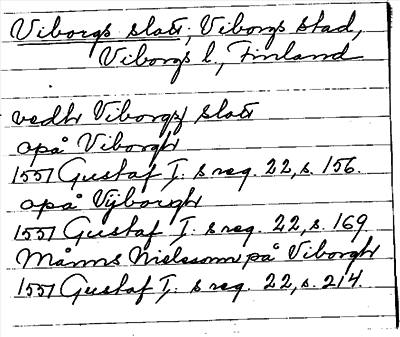 Viborgs slott, Viborgs stad,
Viborgs l., Finland
vedh Viborgz slott
opå Viborgh
1551 Gustaf I:s reg. 22, s. 156.
opå Vijborgh
1551 Gustaf I:s reg. 22, s. 169
Måns Nielsson på Viborgh
1551 Gustaf I:s reg. 22, s. 214.